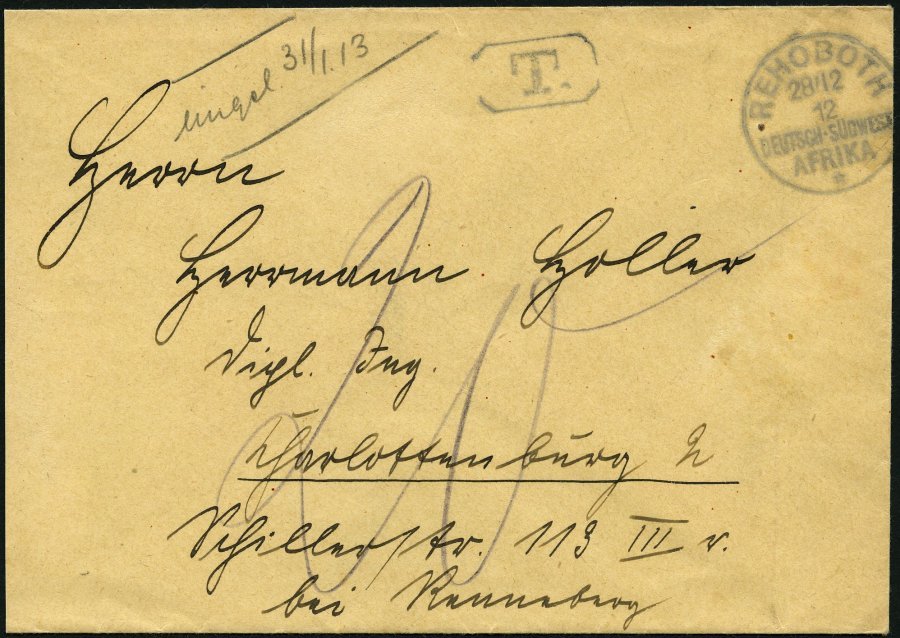 eingel. 31/1.13
T.
REHOBOTH
28/12
12
DEUTSCH-SÜDWEST
AFRIKA
Herrn
Herrmann Holler
Dipl. Ing.
Charlottenburg 2
Schillerstr. 113 III r.
bei Renneberg
20